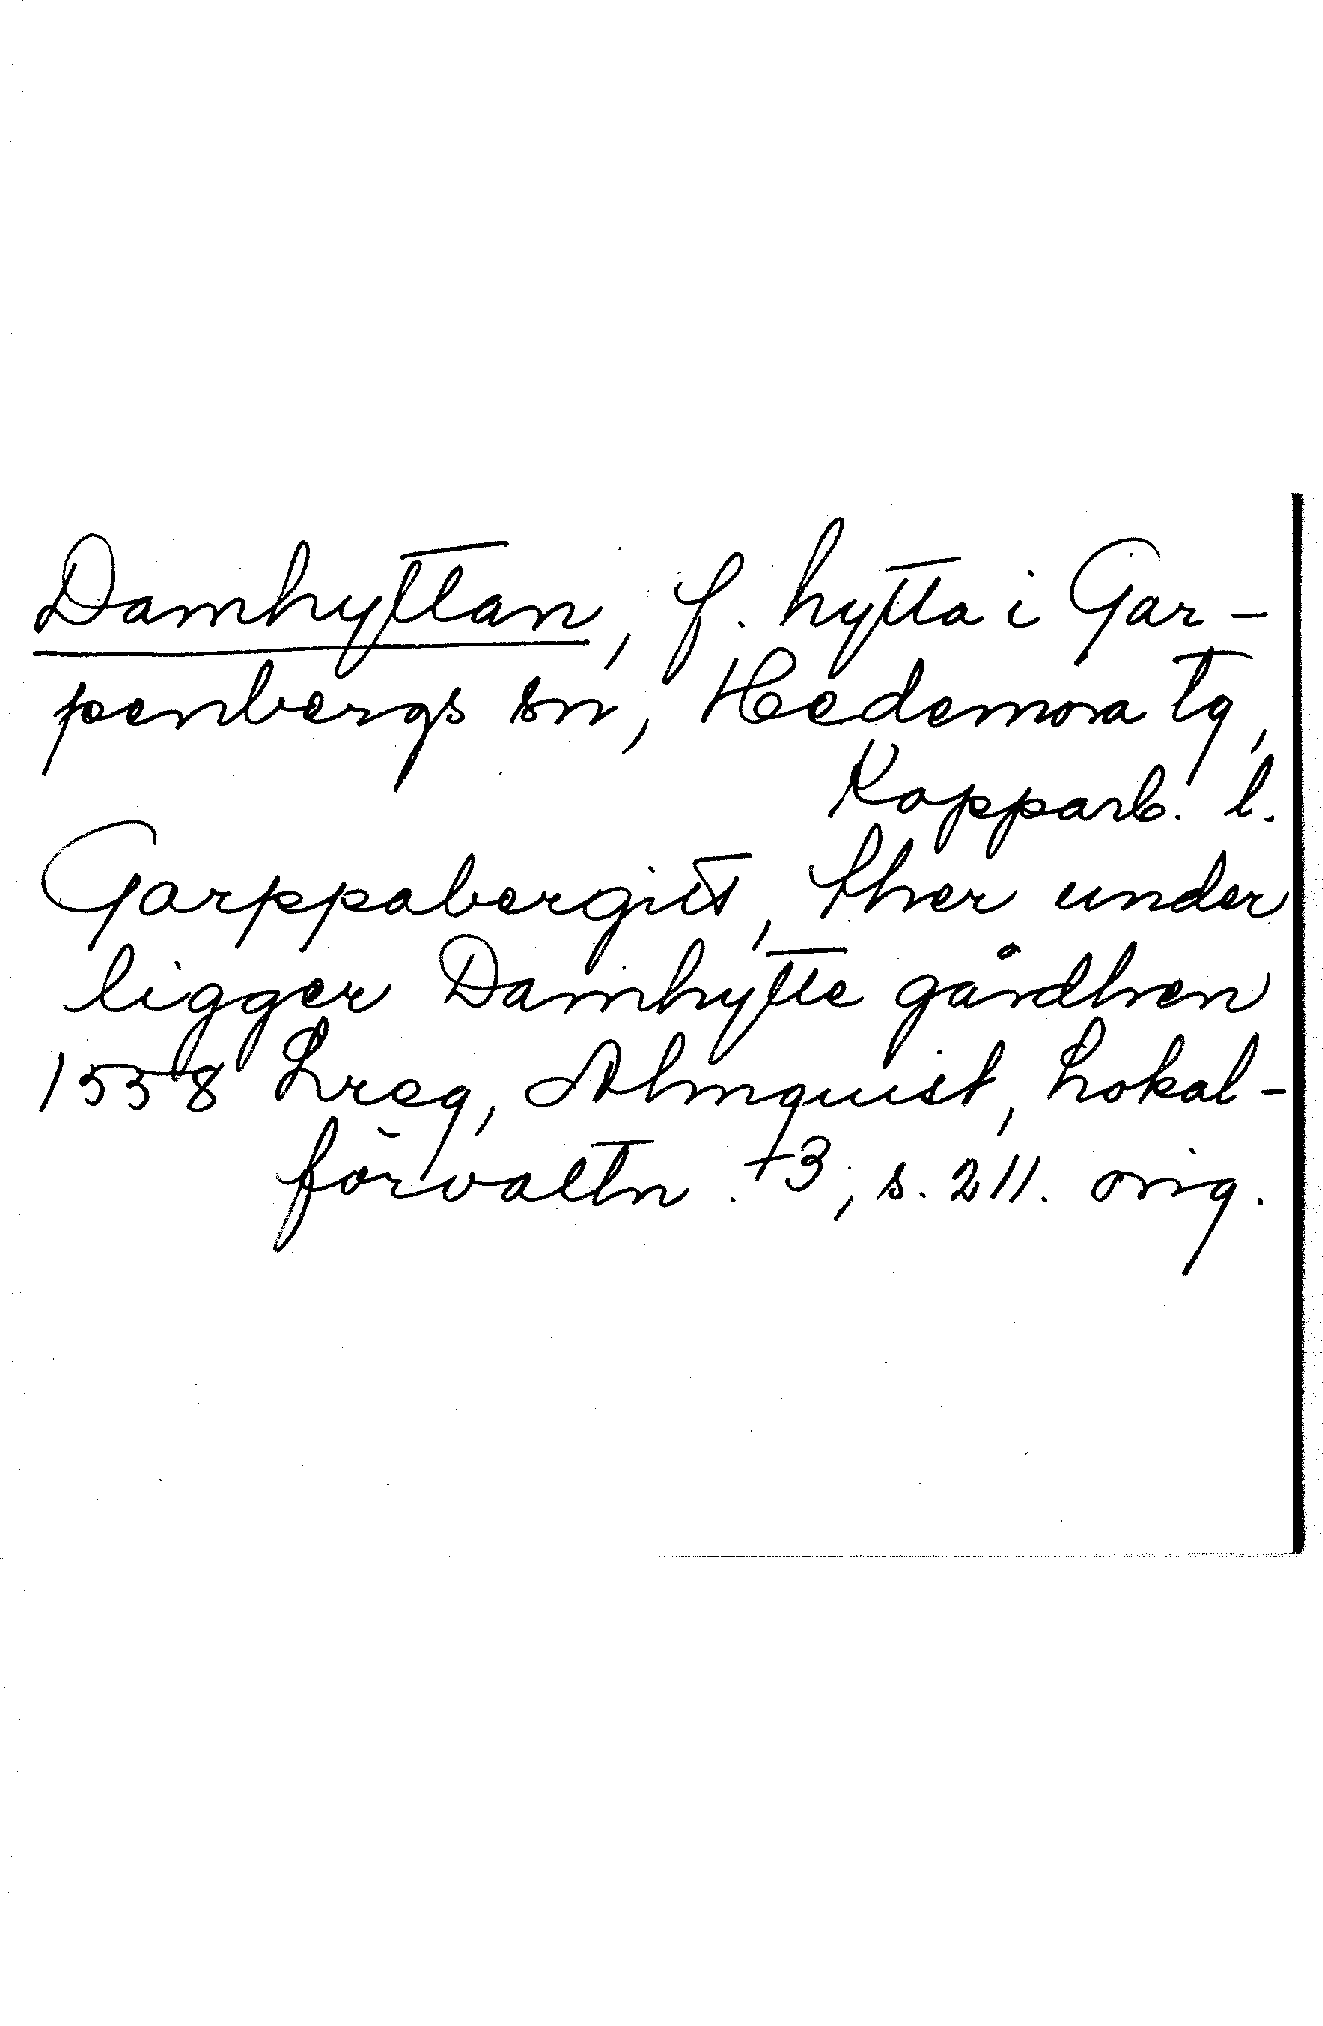 Damhyttan, f. hytta i Gar-
penbergs sn, Hedemora tg,
Kopparb. l.
Garppabergitt, ther under
ligger Damhytte gårdhen
1558 Lreg, Almquist, Lokal-
förvaltn. +3, s. 211. orig.